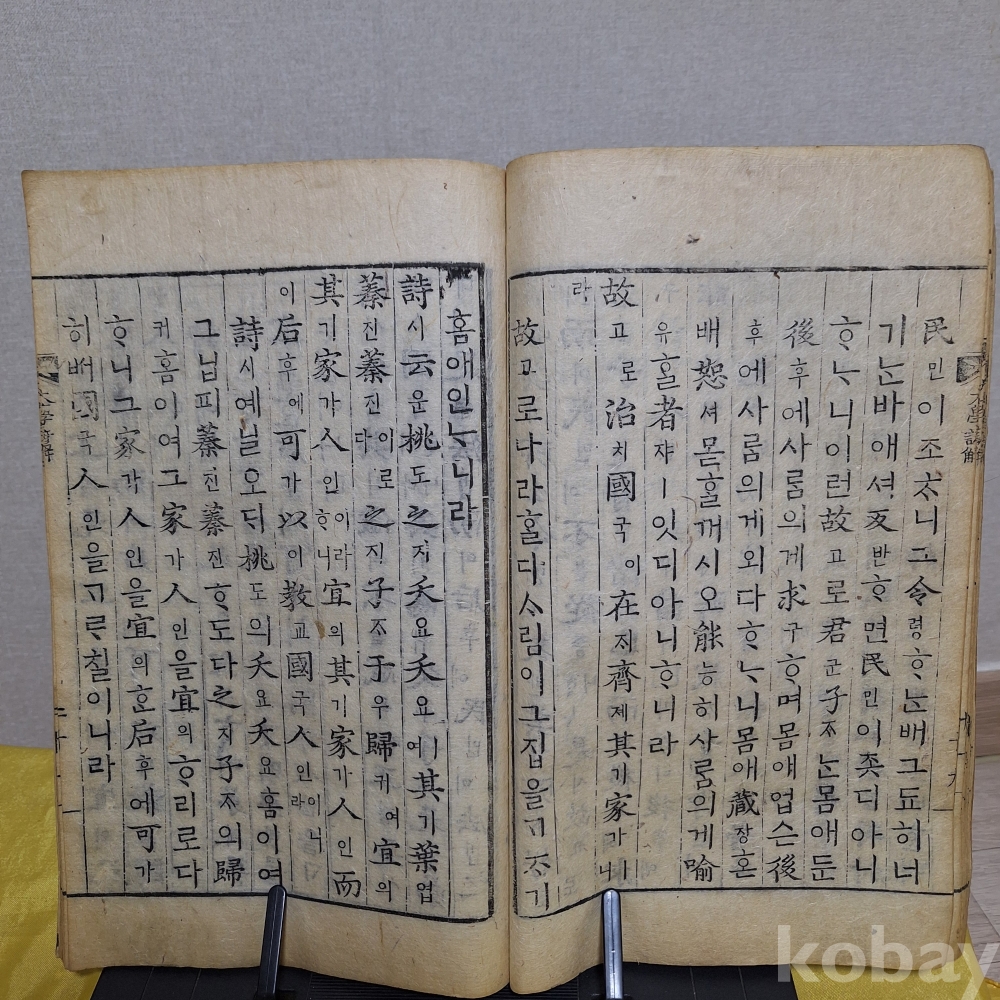 大學諺解
民민이조ᄎᆞ니그令령ᄒᆞᄂᆞᆫ배그됴히너
기ᄂᆞᆫ바애셔反반ᄒᆞ면民민이좃디아니
ᄒᆞᄂᆞ니이런故고로君군子ᄌᆞᄂᆞᆫ몸애둔
後후에사ᄅᆞᆷ의게求구ᄒᆞ며몸애업슨後
후에사ᄅᆞᆷ의게외다ᄒᆞᄂᆞ니몸애藏장혼
배恕셔몯ᄒᆞᆯ꺼시오能능히사ᄅᆞᆷ의게喩
유ᄒᆞᆯ者쟈ㅣ잇디아니ᄒᆞ니라
故고로治치國국이在ᄌᆡ齊졔其기家가ᄒᆞ니
라
故고로나라홀다ᄉᆞ림이그집을ᄀᆞᄌᆞ기
홈애인ᄂᆞ니라
詩시云운桃도之지夭요夭요ㅣ여其기葉엽
蓁진蓁진이로다之지子ᄌᆞ于우歸귀여宜의
其기家가人인이라ᄒᆞ니宜의其기家가人인而
이后후에可가以이敎교國국人인이니라
詩시예닐오ᄃᆡ桃도의夭요夭요홈이여
그닙피蓁진蓁진ᄒᆞ도다之지子ᄌᆞ의歸
귀홈이여그家가人인을宜의ᄒᆞ리로다
ᄒᆞ니그家가人인을宜의ᄒᆞᆫ后후에可가
히ᄡᅥ國국人인을ᄀᆞᄅᆞ칠이니라
大學諺解
kobay